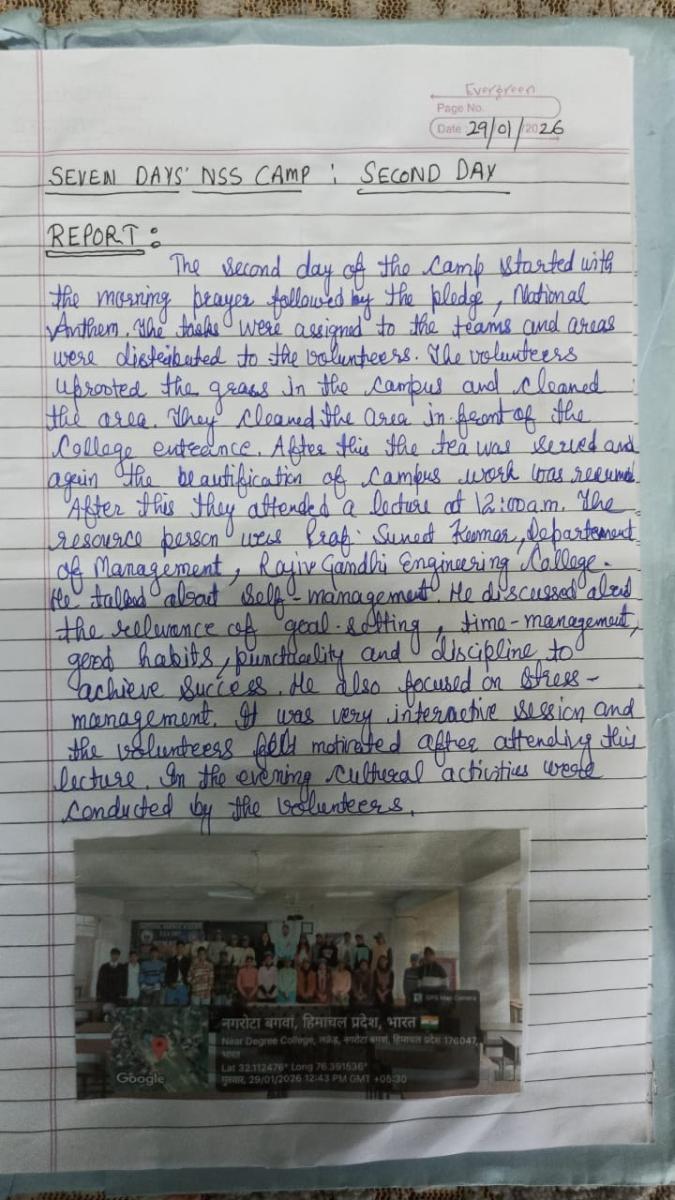 Evergreen
Page No.
Date 29/01/2026
SEVEN DAYS' NSS CAMP : SECOND DAY
REPORT :
The second day of the camp started with
the morning prayer followed by the pledge, National
Anthem. The tasks were assigned to the teams and areas
were distributed to the volunteers. The volunteers
uprooted the grass in the campus and cleaned
the area. They cleaned the area in front of the
College entrance. After this the tea was served and
again the beautification of campus work was resumed
After this they attended a lecture at 12:00am. The
resource person was Prof. Suneet Kumar, Department
of Management, Rajiv Gandhi Engineering College.
He talked about self-management. He discussed about
the relevance of goal-setting, time-management,
good habits, punctuality and discipline to
achieve success. He also focused on stress-
management. It was very interactive session and
the volunteers felt motivated after attending this
lecture. In the evening cultural activities were
conducted by the volunteers.
GPS Map Camera
नगरोटा बगवां, हिमाचल प्रदेश, भारत
Near Degree College, नगरोटा बगवां, हिमाचल प्रदेश 176047,
भारत
Lat 32.112476° Long 76.391536°
गुरुवार, 29/01/2026 12:43 PM GMT +05:30
Google